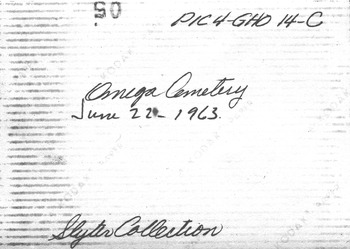 50
PIC4-GHO 14-C
Omega Cemetery
June 22- 1963.
Slyter Collection